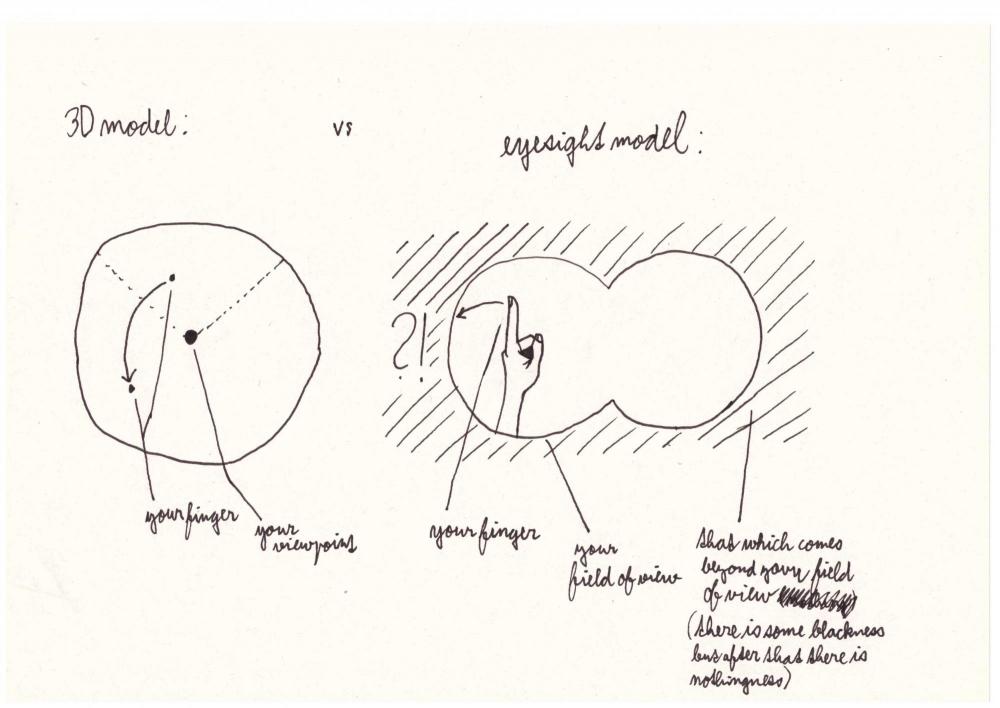 3D model:
vs
eyesight model:
?!
your finger
your
viewpoint
your finger
your
field of view
that which comes
beyond your field
of view
(there is some blackness
but after that there is
nothingness)